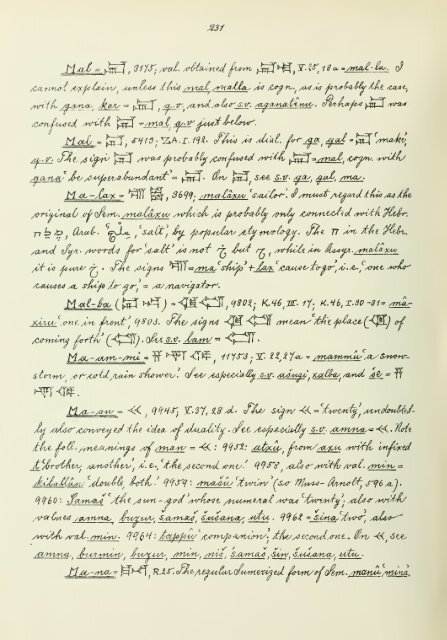 231
Mal = 𒂷, 3175; val. obtained from 𒂷, V.25,18a = mal-la. I
cannot explain, unless this mal, malla is cogn., as is probably the case,
with gana, kar = , q.v., and also s.v. aganatênu. Perhaps was
confused with = mal, q.v. just below.
Mal = , 5413; ZA.I.192. This is dial. for ga, gal = 'make',
q.v. The sign was probably confused with = mal, cogn. with
gana 'be superabundant' = . On , see s.v. ga, gal, ma.
Ma-lax = , 3699; malâxu 'sailor'. I must regard this as the
original of Sem. malâxu which is probably only connected with Hebr.
מלח, Arab. 'salt', by popular etymology. The ח in the Hebr.
and Syr. words for 'salt' is not but , while in Assyr. malâxu
it is pure . The signs = ma 'ship' + lax 'cause to go', i.e., one who
causes a ship to go, = a navigator.
Mal-ba ( ) = , 9802; K.46, III. 17; K.46, I.30-31 = mâ-
xiru 'one in front', 9803. The signs mean 'the place ( ) of
coming forth' ( ). See s.v. lam = .
Ma-am-mi = , 11753; V. 22,27a = mammû 'a snow-
storm, or cold rain shower.' See especially s.v. ašugi, xalba, and še =
.
Ma-an = 𒌋𒌋, 9945, V.37, 28 d. The sign 𒌋𒌋 = 'twenty', undoubted-
ly also conveyed the idea of duality. See especially s.v. amna = 𒌋𒌋. Note
the foll. meanings of man = 𒌋𒌋: 9952: atxû, from axu with infixed
t 'brother, another', i.e., 'the second one.' 9953, also with val. min =
kilallân 'double, both.' 9959: mâšu 'twin' (so Muss-Arnolt, 596 a).
9960: Šamaš 'the sun-god' whose numeral was 'twenty', also with
values amna, buzur, šamaš, šušana, utu. 9962 = šina 'two', also
with val. min. 9964: tappû 'companion', the second one. On 𒌋𒌋, see
amna, burmin, buzur, min, niš, šamaš, šin, šušana, utu.
Ma-na = , R.25. The regular Sumerized form of Sem. manû, mina.